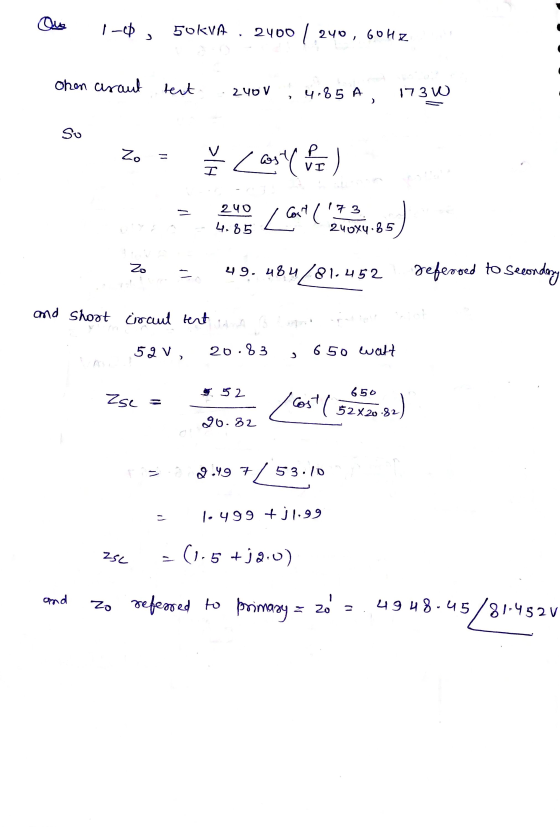 Que 1-ϕ, 50KVA. 2400 / 240, 60Hz
Open circuit test 240V, 4.85A, 173W
So
Zo = V/I ∠cos⁻¹(P/VI)
= 240/4.85 ∠cos⁻¹(173/240×4.85)
Zo = 49.484∠81.452 referred to Secondary
and short circuit test
52V, 20.83, 650 watt
ZSC = 52/20.82 ∠cos⁻¹(650/52×20.82)
= 2.497∠53.10
= 1.499 + j1.99
ZSC = (1.5 + j2.0)
and Zo referred to primary = Zo' = 4948.45∠81.452V